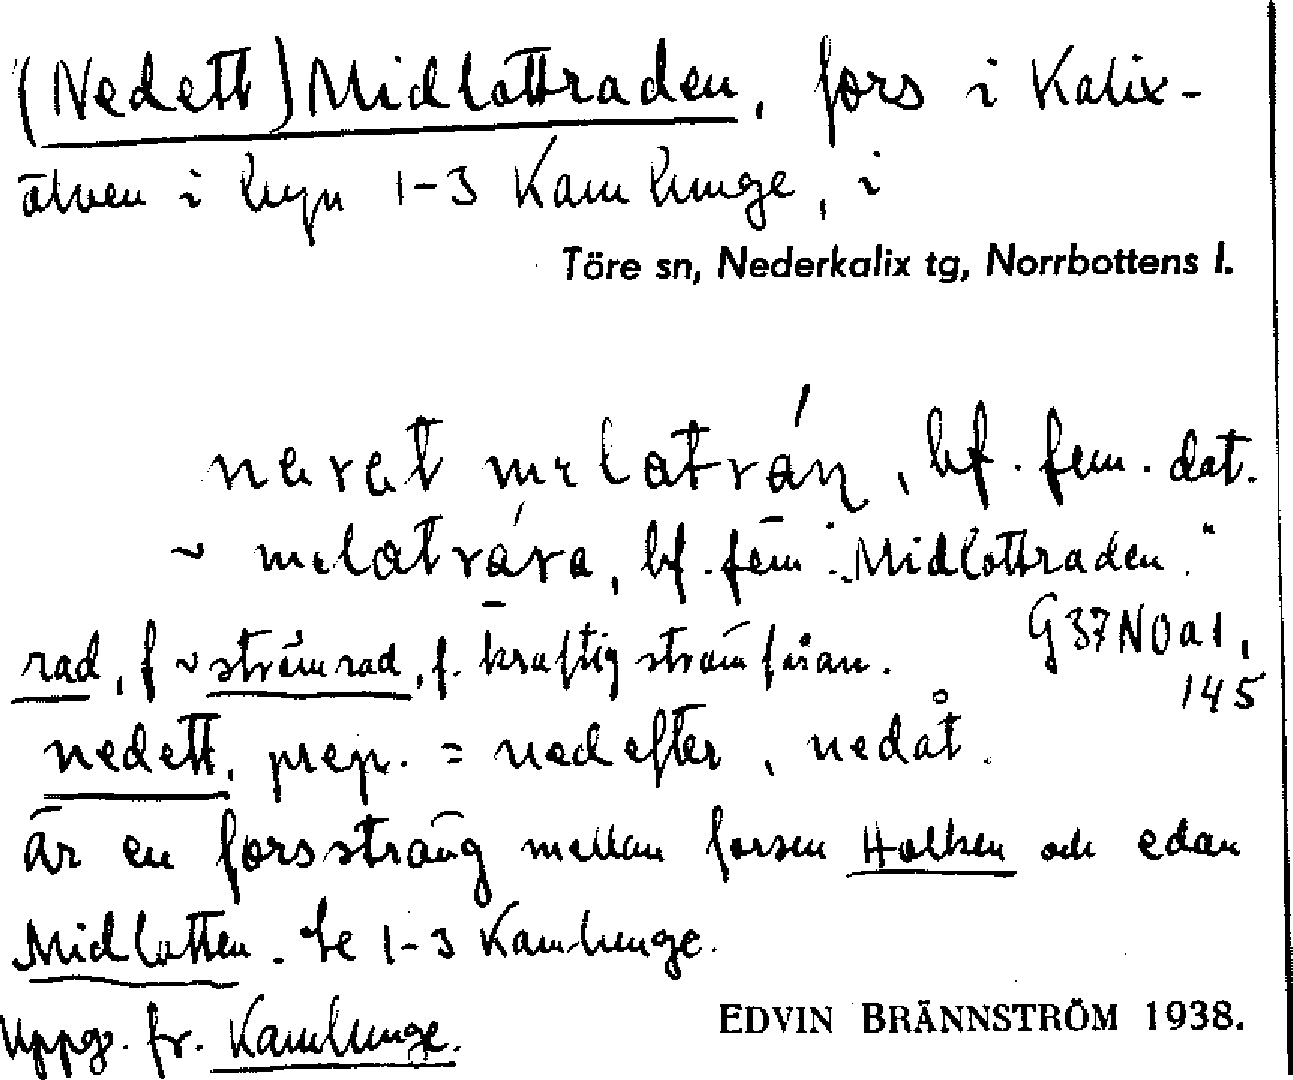 (Nedett) Midlottraden, fors i Kalix-
älven i byn 1-3 Kamlunge, i
Töre sn, Nederkalix tg, Norrbottens l.
bf. fem. dat.
~ bf. fem. "Midlottraden."
rad, f ~ strömrad, f. kraftig strömfåran.
G37NOa1,
145
nedett, prep. = nedefter, nedåt.
är en forssträng mellan forsen Holken och edan
Midlotten. Se 1-3 Kamlunge.
Uppg. fr. Kamlunge.
EDVIN BRÄNNSTRÖM 1938.